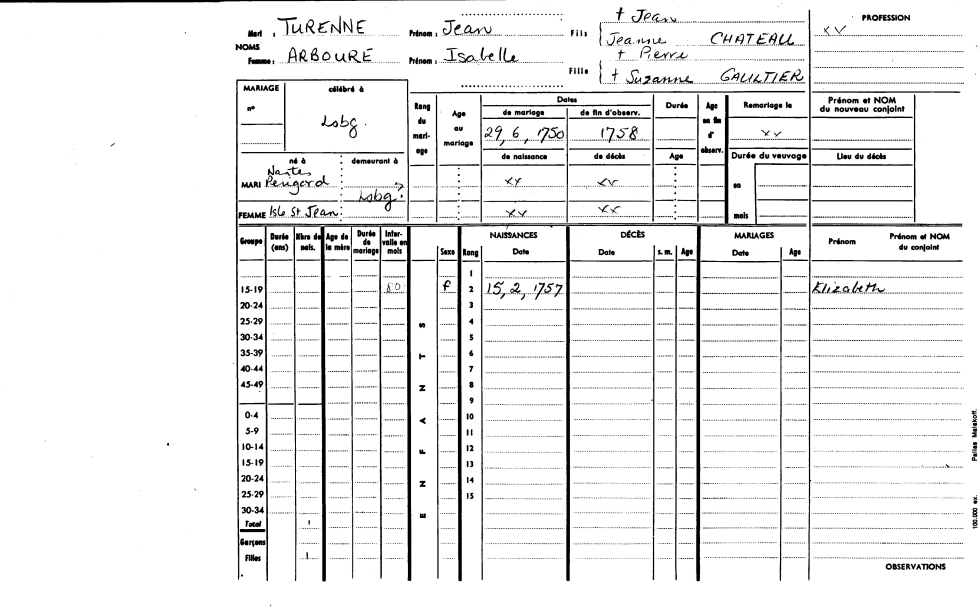 Mari , TURENNE Prénom , Jean Fils + Jean PROFESSION
Jeanne CHATEAU xx
NOMS
Femme , ARBOURE Prénom , Isabelle Fille + Pierre
+ Suzanne GAULTIER
MARIAGE célébré à Rang du mari- age Age au mariage Dates Durée Age en fin d' observ. Remariage le Prénom et NOM du nouveau conjoint
n° Lsbg. de mariage de fin d'observ.
29, 6, 1750 1758 xx
né à demeurant à de naissance de décès Age Durée du veuvage Lieu du décès
Nantes
MARI Perigord Lsbg? xx xx en
FEMME Isle St Jean xx xx mois
Groupe Durée (ans) Nbre de nais. Age de la mère Durée de mariage Inter- valle en mois ENFANTS Sexe Rang NAISSANCES Date DÉCÈS Date s. m. Age MARIAGES Date Age Prénom Prénom et NOM du conjoint
1
15-19 80 f 2 15, 2, 1757 Elizabeth
20-24 3
25-29 4
30-34 5
35-39 6
40-44 7
45-49 8
9
0-4 10
5-9 11
10-14 12
15-19 13
20-24 14
25-29 15
30-34
Total 1
Garçons
Filles 1
OBSERVATIONS
100.000 ex. Pallas Malakoff.